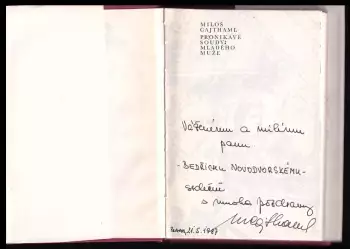 MILOŠ
GAJTHAML
PRONIKAVÉ
SOUDY
MLADÉHO
MUŽE
Váženému a milému
panu
-BEDŘICHU NOVODVORSKÉMU-
srdečně
s mnoha pozdravy
21.5.1987